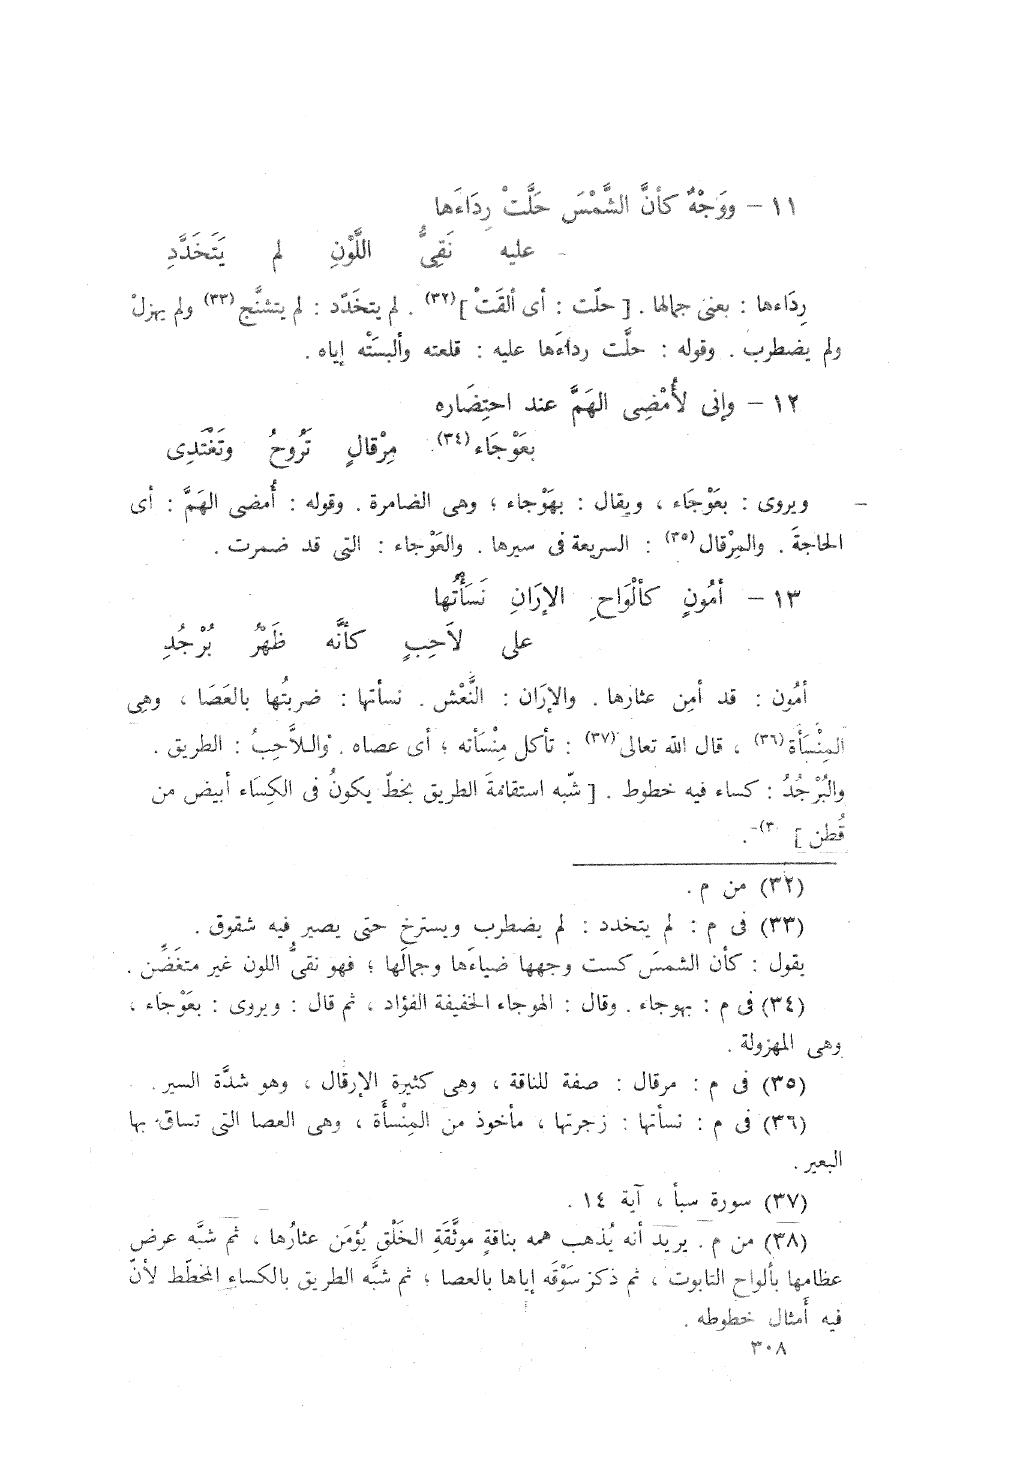 ١١ – ووَجْهٌ كأنَّ الشَّمْسَ حَلَّتْ رِدَاءَها
عليه نَقِىُّ اللَّوْنِ لم يَتَخَدَّدِ
رِدَاءها : بعنى جمالها . [ حلّت : أى ألقَتْ ](٣٢) . لم يتخَدّد : لم يتشنَّج(٣٣) ولم يهزلْ
ولم يضطرب . وقوله : حلَّت رداءَها عليه : قلعته وألبسَتْه إياه .
١٢ – وإنى لأُمْضِى الهَمَّ عند احتِضَاره
بعَوْجَاء(٣٤) مِرْقالٍ تَرُوحُ وتَغْتَدِى
ويروى : بعَوْجَاء ، ويقال : بهَوْجاء ؛ وهى الضامرة . وقوله : أُمضى الهَمَّ : أى
الحاجةَ . والمِرْقال(٣٥) : السريعة فى سيرها . والعَوْجاء : التى قد ضمرت .
١٣ – أمُونٍ كألْوَاحِ الإرَانِ نَسَأْتُها
على لاَحِبٍ كأنَّه ظَهْرُ بُرْجُدِ
أمُون : قد أمِن عثارها . والإرَان : النَّعْش . نسأتها : ضربتُها بالعَصَا ، وهِى
المِنْسَأَة(٣٦) ، قال اللّه تعالى(٣٧) : تأكل مِنْسَأته ؛ أى عصاه . واللاَّحِبُ : الطريق .
والبُرْجُدُ : كساء فيه خطوط . [ شبّه استقامةَ الطريق بخطّ يكونُ فى الكِسَاء أبيض من
قُطن ] .
(٣٢) من م .
(٣٣) فى م : لم يتخدد : لم يضطرب ويسترخ حتى يصير فيه شقوق .
يقول : كأن الشمسَ كست وجهها ضياءَها وجمالَها ؛ فهو نقىُّ اللون غير متغَضِّن .
(٣٤) فى م : بهوجاء . وقال : الهوجاء الخفيفة الفؤاد ، ثم قال : ويروى : بعَوْجَاء ،
وهى المهزولة .
(٣٥) فى م : مرقال : صفة للناقة ، وهى كثيرة الإرقال ، وهو شدَّة السير .
(٣٦) فى م : نسأتها : زجرتها ، مأخوذ من المِنْسأَة ، وهى العصا التى تساق بها
البعير .
(٣٧) سورة سبأ ، آية ١٤ .
(٣٨) من م . يريد أنه يُذهب همه بناقةٍ موثَّقَةِ الخَلْقِ يُؤمَن عثارُها ، ثم شبَّه عرض
عظامها بألواح التابوت ، ثم ذكر سَوْقَه إياها بالعصا ؛ ثم شبَّه الطريق بالكساءِ المخطّط لأنّ
فيه أمثال خطوطه .
٣٠٨